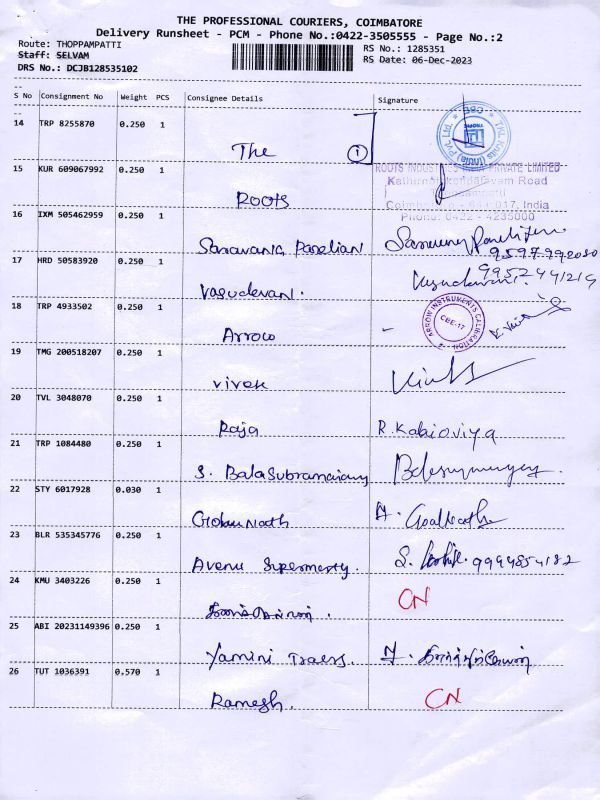 THE PROFESSIONAL COURIERS, COIMBATORE
Delivery Runsheet - PCM - Phone No.:0422-3505555 - Page No.:2
Route: THOPPAMPATTI
Staff: SELVAM
DRS No.: DCJB128535102
RS No.: 1285351
RS Date: 06-Dec-2023
S No Consignment No Weight PCS Consignee Details Signature
14 TRP 8255870 0.250 1
The 1
15 KUR 609067992 0.250 1
ROOTS INDUSTRIES INDIA PRIVATE LIMITED
Road
ROOTS
Coimbatore - 641 017, India
Phone: 0422 - 4235000
16 IXM 505462959 0.250 1
Saravana Pandian
9597992030
17 HRD 50583920 0.250 1
9952441219
Vasudevan.
18 TRP 4933502 0.250 1
ARROW INSTRUMENTS CALIBRATION
CBE-17
Arrow -
19 TMG 200518207 0.250 1
vivek
20 TVL 3048070 0.250 1
Raja R. Kabioviya
21 TRP 1084480 0.250 1
S. Balasubramaniam
22 STY 6017928 0.030 1
Gokul Nath
23 BLR 535345776 0.250 1
Avenu Supermerty. 9994854182
24 KMU 3403226 0.250 1
CN
25 ABI 20231149396 0.250 1
Yamini Traers.
26 TUT 1036391 0.570 1
Ramesh. CN